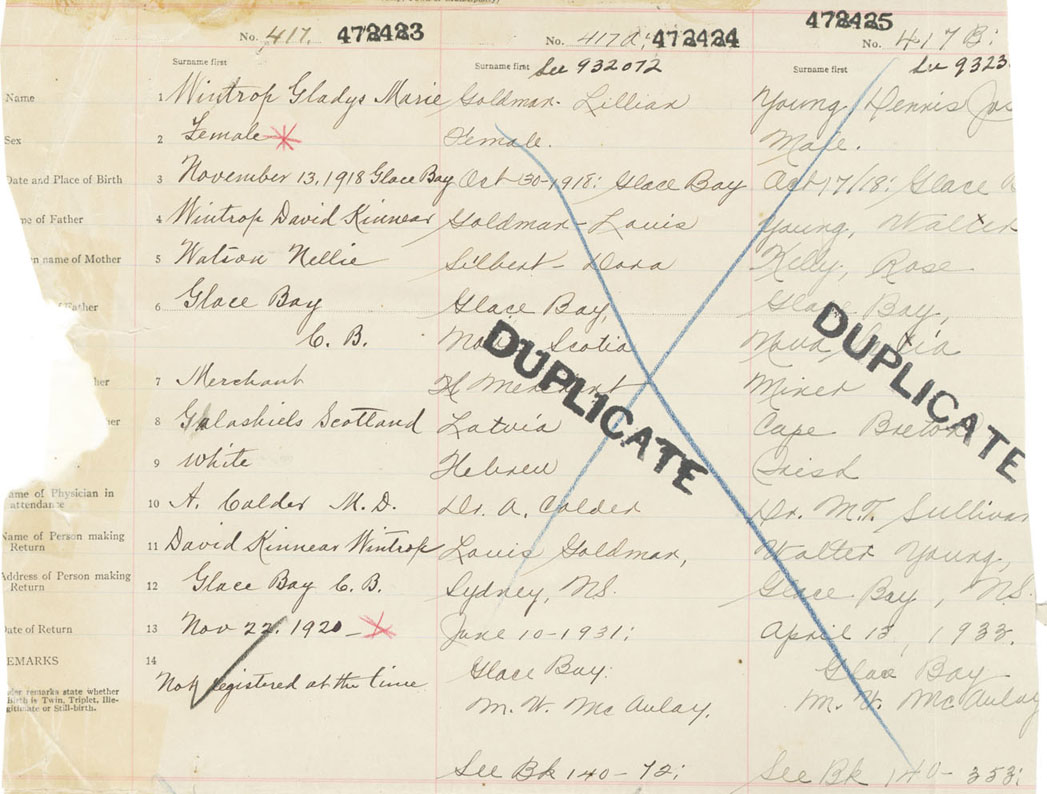 No. 417. 472423
No. 417 A; 472424
472425
No. 417 B;
Surname first
Surname first See 932072
Surname first
Name 1 Wintrop Gladys Marie Goldman- Lillian Young, Dennis
Sex 2 Female * Female. Male.
Date and Place of Birth 3 November 13, 1918 Glace Bay Oct 30-1918; Glace Bay Oct 17/18; Glace
of Father 4 Wintrop David Kinnear Goldman- Louis Young, Walter
name of Mother 5 Watson Nellie Silbert- Dora Kelly, Rose
Father 6 Glace Bay Glace Bay, Glace Bay,
C. B. Nova Scotia Nova Scotia
7 Merchant Merchant Miner
8 Galashiels Scotland Latvia Cape Breton
9 White Hebrew Irish
DUPLICATE
DUPLICATE
Name of Physician in
attendance 10 A. Calder M. D. Dr. A. Calder Dr. M.T. Sullivan
Name of Person making
Return 11 David Kinnear Wintrop Louis Goldman, Walter Young,
Address of Person making
Return 12 Glace Bay C. B. Sydney, NS. Glace Bay, NS.
Date of Return 13 Nov 22, 1920 - * June 10-1931; April 13, 1933.
EMARKS 14 Glace Bay. Glace Bay
Not registered at the time
remarks state whether
Birth is Twin, Triplet, Ille-
gitimate or Still-birth.
M. W. McAulay. M. W. McAulay
See Bk 140-72; See Bk 140-353;